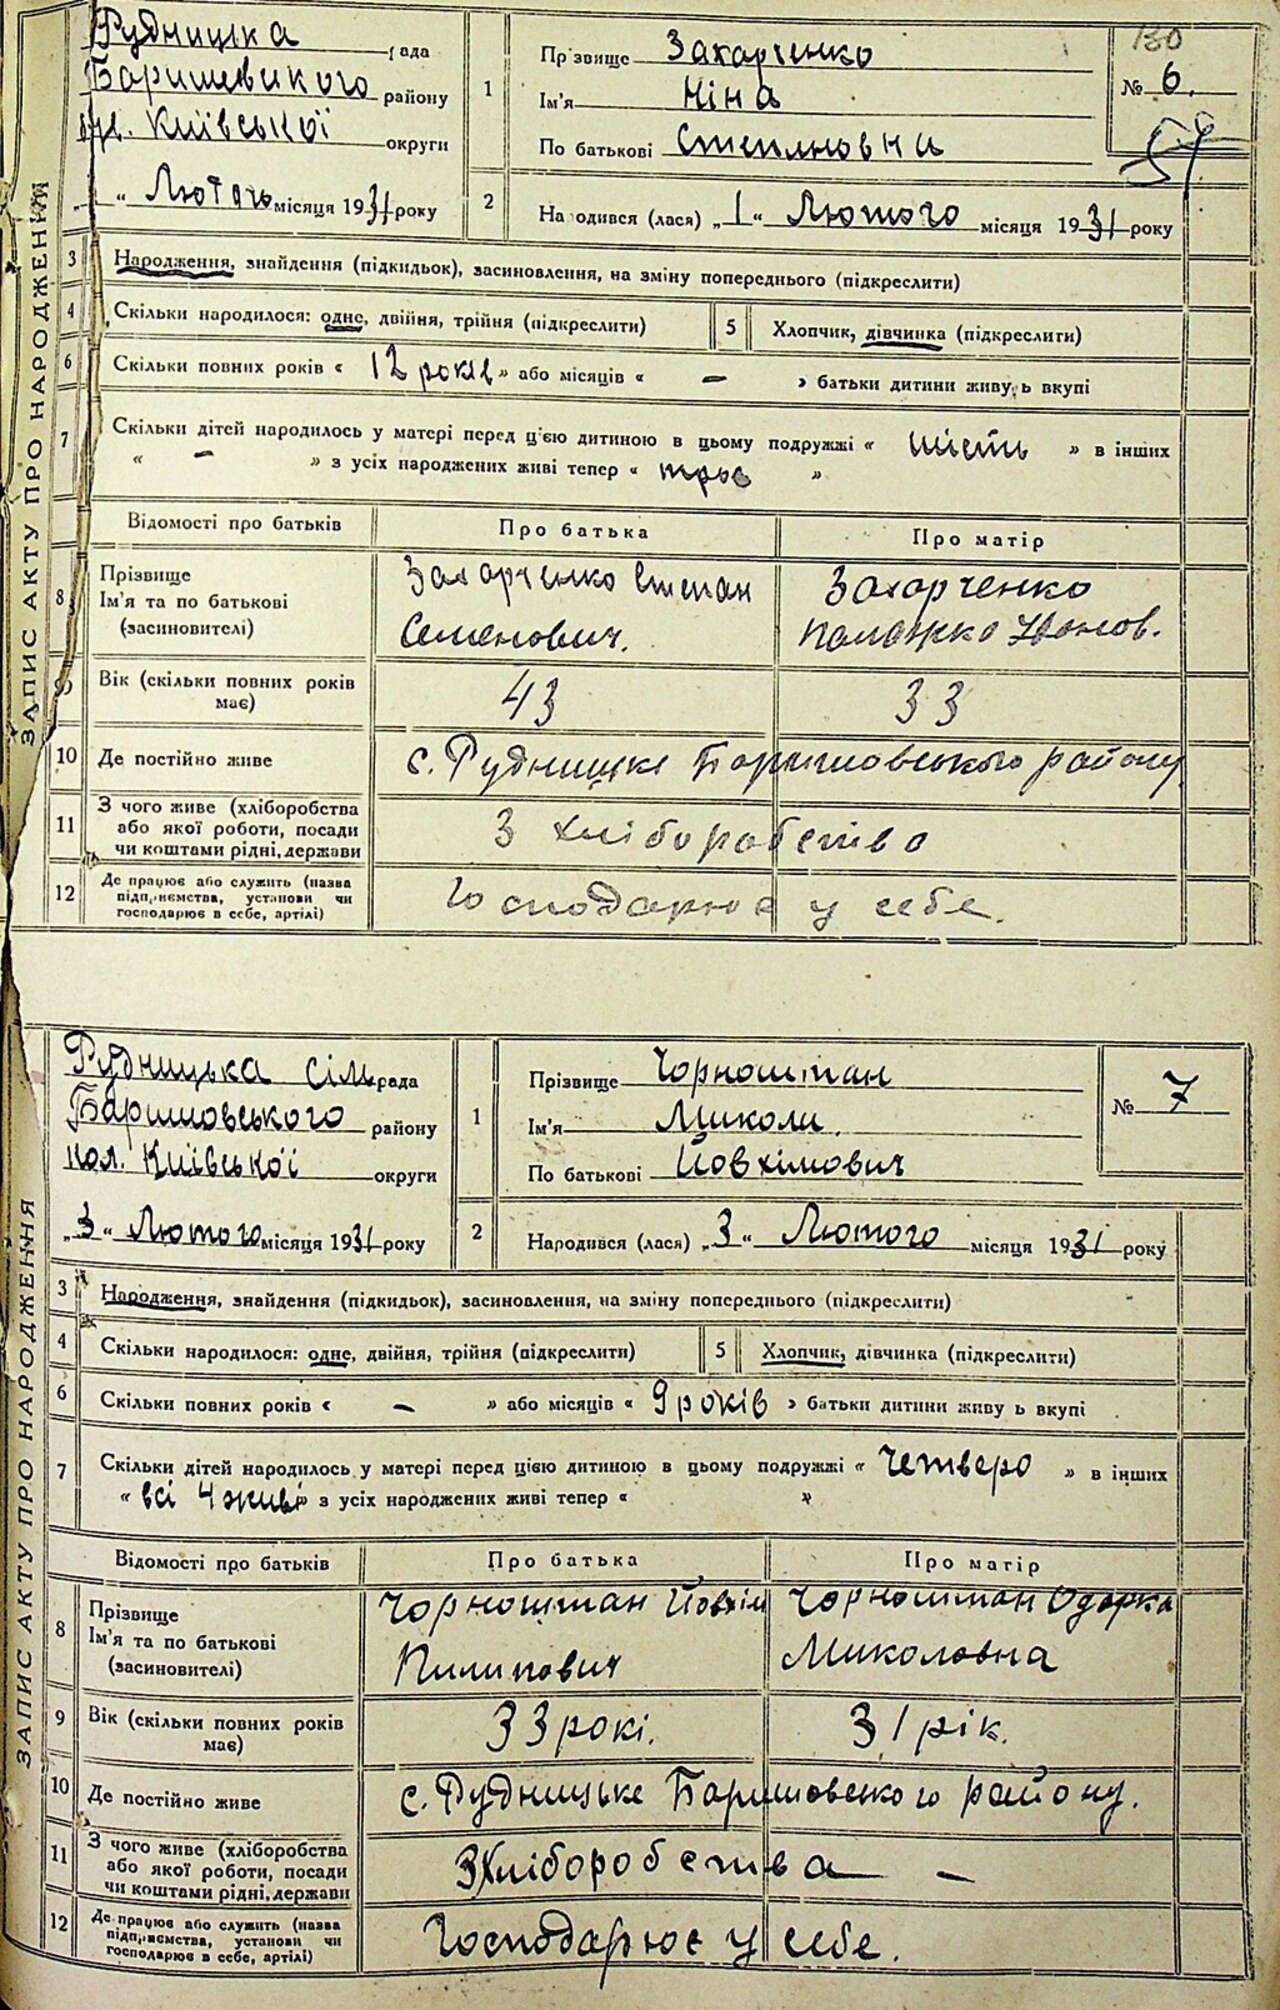 ЗАПИС АКТУ ПРО НАРОДЖЕННЯ
Рудницька рада
району
Київської округи
„1“ Лютого місяця 1931 року
1
Прізвище Захарченко
Ім'я Ніна
По батькові Степановна
130
№ 6.
2
Народився (лася) „1“ Лютого місяця 1931 року
3
Народження, знайдення (підкидьок), засиновлення, на зміну попереднього (підкреслити)
4
Скільки народилося: одне, двійня, трійня (підкреслити)
5
Хлопчик, дівчинка (підкреслити)
6
Скільки повних років « 12 років » або місяців « – » батьки дитини живуть вкупі
7
Скільки дітей народилось у матері перед цією дитиною в цьому подружжі « шість » в інших
« – » з усіх народжених живі тепер « троє »
Відомості про батьків
Про батька
Про матір
8
Прізвище
Ім'я та по батькові
(засиновителі)
Захарченко Степан
Семенович.
Захарченко
Іванов.
9
Вік (скільки повних років
має)
43
33
10
Де постійно живе
с. Рудницьке Баришовського району
11
З чого живе (хліборобства
або якої роботи, посади
чи коштами рідні, держави
З хліборобства
12
Де працює або служить (назва
підприємства, установи чи
господарює в себе, артілі)
Господарює у себе.
ЗАПИС АКТУ ПРО НАРОДЖЕННЯ
Рудницька сіль рада
Баришовського району
Київської округи
„3“ Лютого місяця 1931 року
1
Прізвище Чорноштан
Ім'я Миколи.
По батькові Йовхімович
№ 7
2
Народився (лася) „3“ Лютого місяця 1931 року
3
Народження, знайдення (підкидьок), засиновлення, на зміну попереднього (підкреслити)
4
Скільки народилося: одне, двійня, трійня (підкреслити)
5
Хлопчик, дівчинка (підкреслити)
6
Скільки повних років « – » або місяців « 9 років » батьки дитини живу ь вкупі
7
Скільки дітей народилось у матері перед цією дитиною в цьому подружжі « Четверо » в інших
« всі 4 живі » з усіх народжених живі тепер « »
Відомості про батьків
Про батька
Про матір
8
Прізвище
Ім'я та по батькові
(засиновителі)
Чорноштан Йовхім
Пилипович
Чорноштан Одарка
Миколовна
9
Вік (скільки повних років
має)
33 рокі.
31 рік.
10
Де постійно живе
с. Рудницьке Баришовського району.
11
З чого живе (хліборобства
або якої роботи, посади
чи коштами рідні, держави
З Хліборобства –
12
Де працює або служить (назва
підприємства, установи чи
господарює в себе, артілі)
Господарює у себе.